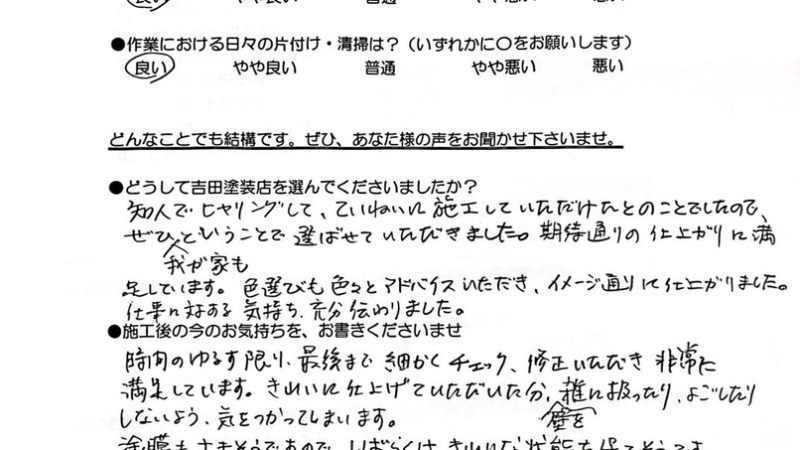 良い やや良い 普通 やや悪い 悪い
●作業における日々の片付け・清掃は？（いずれかに〇をお願いします）
良い やや良い 普通 やや悪い 悪い
どんなことでも結構です。ぜひ、あなた様の声をお聞かせ下さいませ。
●どうして吉田塗装店を選んでくださいましたか？
知人でヒヤリングして、ていねいに施工していただけたとのことでしたので、
ぜひということで選ばせていただきました。期待通りの仕上がりに満
我が家も
足しています。色選びも色々とアドバイスいただき、イメージ通りに仕上がりました。
仕事に対する気持ち、充分伝わりました。
●施工後の今のお気持ちを、お書きくださいませ
時間のゆるす限り、最後まで細かくチェック、修正いただき非常に
満足しています。きれいに仕上げていただいた分、雑に扱ったり、よごしたり
しないよう、気をつかってしまいます。
壁を
塗膜も できそうであので、しばらくは、きれいな状態を保てそうです